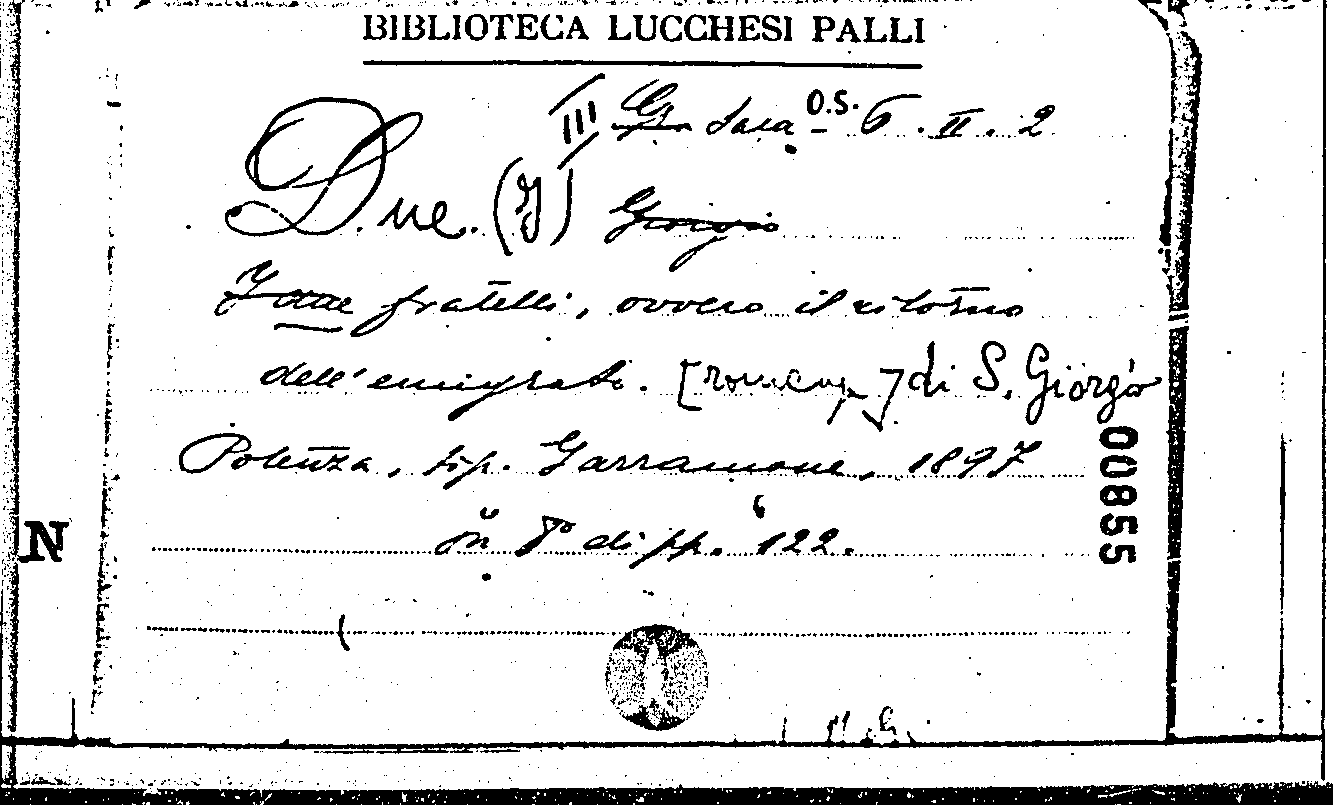 BIBLIOTECA LUCCHESI PALLI
III Sala O.S. 6. II. 2
Due. (I) Giorgio
I due fratelli, ovvero il ritorno
dell'emigrato. [romanzo] di S. Giorgio
Potenza, tip. Garramone, 1897
in 8° di pp. 122.
00855
N